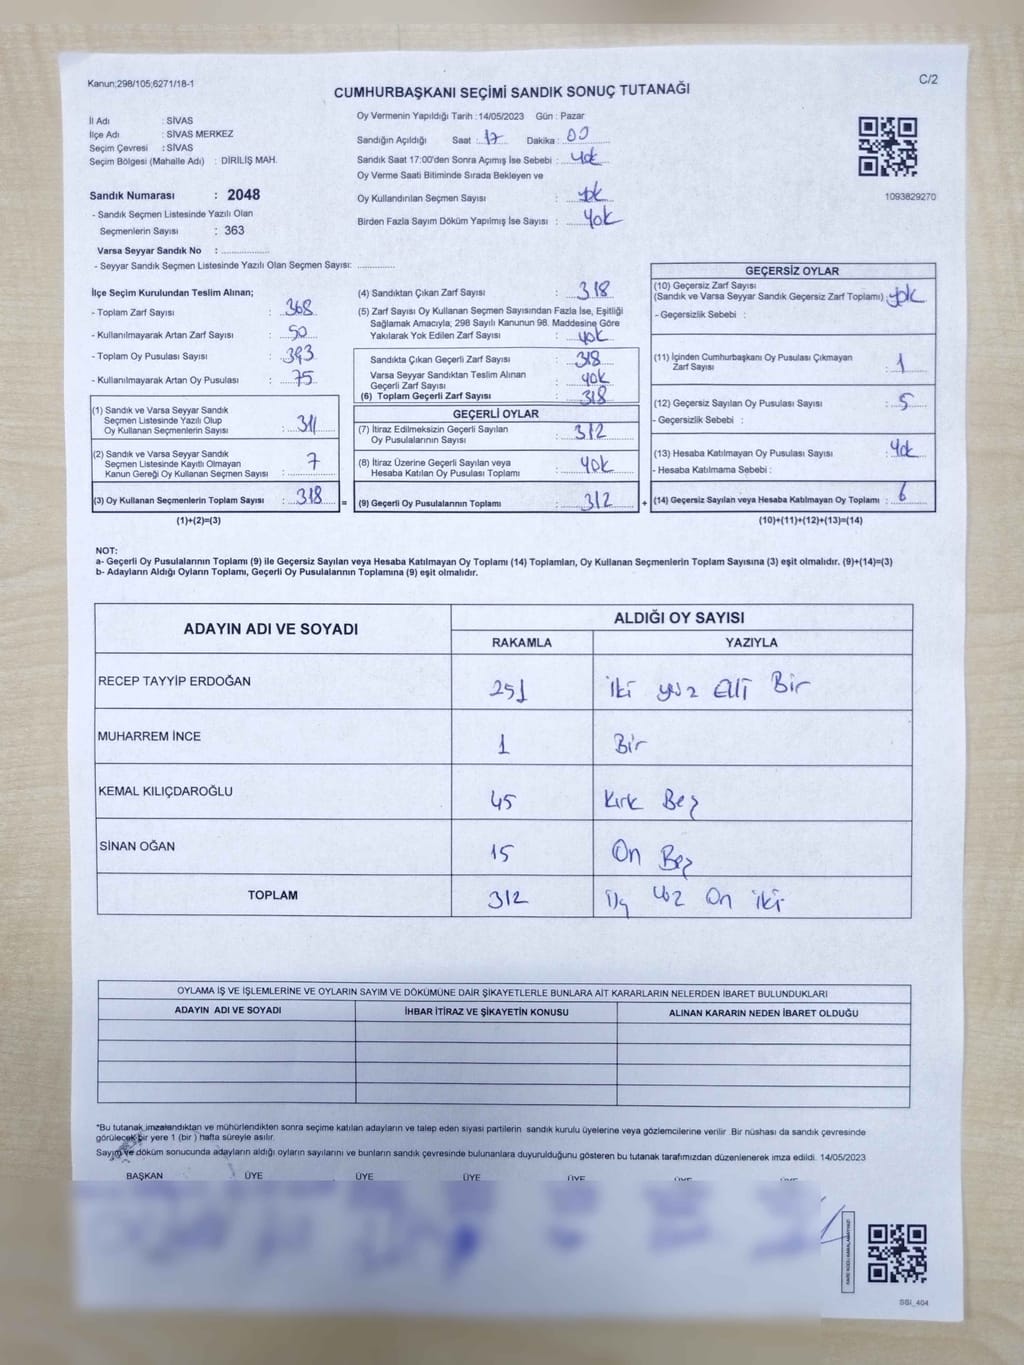 Kanun;298/105;6271/18-1
C/2
CUMHURBAŞKANI SEÇİMİ SANDIK SONUÇ TUTANAĞI
İl Adı : SİVAS
İlçe Adı : SİVAS MERKEZ
Seçim Çevresi : SİVAS
Seçim Bölgesi (Mahalle Adı) : DİRİLİŞ MAH.
Sandık Numarası : 2048
- Sandık Seçmen Listesinde Yazılı Olan
Seçmenlerin Sayısı : 363
Varsa Seyyar Sandık No : ................
- Seyyar Sandık Seçmen Listesinde Yazılı Olan Seçmen Sayısı: .............
Oy Vermenin Yapıldığı Tarih : 14/05/2023 Gün : Pazar
Sandığın Açıldığı Saat : 17 Dakika : 00
Sandık Saat 17:00'den Sonra Açımış İse Sebebi : yok
Oy Verme Saati Bitiminde Sırada Bekleyen ve
Oy Kullandırılan Seçmen Sayısı : yok
Birden Fazla Sayım Döküm Yapılmış İse Sayısı : yok
1093829270
İlçe Seçim Kurulundan Teslim Alınan;
- Toplam Zarf Sayısı : 368
- Kullanılmayarak Artan Zarf Sayısı : 50
- Toplam Oy Pusulası Sayısı : 393
- Kullanılmayarak Artan Oy Pusulası : 75
(1) Sandık ve Varsa Seyyar Sandık
Seçmen Listesinde Yazılı Olup
Oy Kullanan Seçmenlerin Sayısı : 311
(2) Sandık ve Varsa Seyyar Sandık
Seçmen Listesinde Kayıtlı Olmayan
Kanun Gereği Oy Kullanan Seçmen Sayısı : 7
(3) Oy Kullanan Seçmenlerin Toplam Sayısı : 318 =
(1)+(2)=(3)
(4) Sandıktan Çıkan Zarf Sayısı : 318
(5) Zarf Sayısı Oy Kullanan Seçmen Sayısından Fazla İse, Eşitliği
Sağlamak Amacıyla; 298 Sayılı Kanunun 98. Maddesine Göre
Yakılarak Yok Edilen Zarf Sayısı : yok
Sandıkta Çıkan Geçerli Zarf Sayısı : 318
Varsa Seyyar Sandıktan Teslim Alınan
Geçerli Zarf Sayısı : yok
(6) Toplam Geçerli Zarf Sayısı : 318
GEÇERLİ OYLAR
(7) İtiraz Edilmeksizin Geçerli Sayılan
Oy Pusulalarının Sayısı : 312
(8) İtiraz Üzerine Geçerli Sayılan veya
Hesaba Katılan Oy Pusulası Toplamı : yok
(9) Geçerli Oy Pusulalarının Toplamı : 312 +
GEÇERSİZ OYLAR
(10) Geçersiz Zarf Sayısı
(Sandık ve Varsa Seyyar Sandık Geçersiz Zarf Toplamı) : yok
- Geçersizlik Sebebi :
(11) İçinden Cumhurbaşkanı Oy Pusulası Çıkmayan
Zarf Sayısı : 1
(12) Geçersiz Sayılan Oy Pusulası Sayısı : 5
- Geçersizlik Sebebi :
(13) Hesaba Katılmayan Oy Pusulası Sayısı : yok
- Hesaba Katılmama Sebebi :
(14) Geçersiz Sayılan veya Hesaba Katılmayan Oy Toplamı : 6
(10)+(11)+(12)+(13)=(14)
NOT:
a- Geçerli Oy Pusulalarının Toplamı (9) ile Geçersiz Sayılan veya Hesaba Katılmayan Oy Toplamı (14) Toplamları, Oy Kullanan Seçmenlerin Toplam Sayısına (3) eşit olmalıdır. (9)+(14)=(3)
b- Adayların Aldığı Oyların Toplamı, Geçerli Oy Pusulalarının Toplamına (9) eşit olmalıdır.
ADAYIN ADI VE SOYADI
ALDIĞI OY SAYISI
RAKAMLA YAZIYLA
RECEP TAYYİP ERDOĞAN 251 iki yüz elli Bir
MUHARREM İNCE 1 Bir
KEMAL KILIÇDAROĞLU 45 Kırk Beş
SİNAN OĞAN 15 On Beş
TOPLAM 312 üç yüz On iki
OYLAMA İŞ VE İŞLEMLERİNE VE OYLARIN SAYIM VE DÖKÜMÜNE DAİR ŞİKAYETLERLE BUNLARA AİT KARARLARIN NELERDEN İBARET BULUNDUKLARI
ADAYIN ADI VE SOYADI İHBAR İTİRAZ VE ŞİKAYETİN KONUSU ALINAN KARARIN NEDEN İBARET OLDUĞU
*Bu tutanak imzalandıktan ve mühürlendikten sonra seçime katılan adayların ve talep eden siyasi partilerin sandık kurulu üyelerine veya gözlemcilerine verilir. Bir nüshası da sandık çevresinde
görülecek bir yere 1 (bir ) hafta süreyle asılır.
Sayım ve döküm sonucunda adayların aldığı oyların sayılarını ve bunların sandık çevresinde bulunanlara duyurulduğunu gösteren bu tutanak tarafımızdan düzenlenerek imza edildi. 14/05/2023
BAŞKAN ÜYE ÜYE ÜYE ÜYE ÜYE ÜYE
SSİ_404